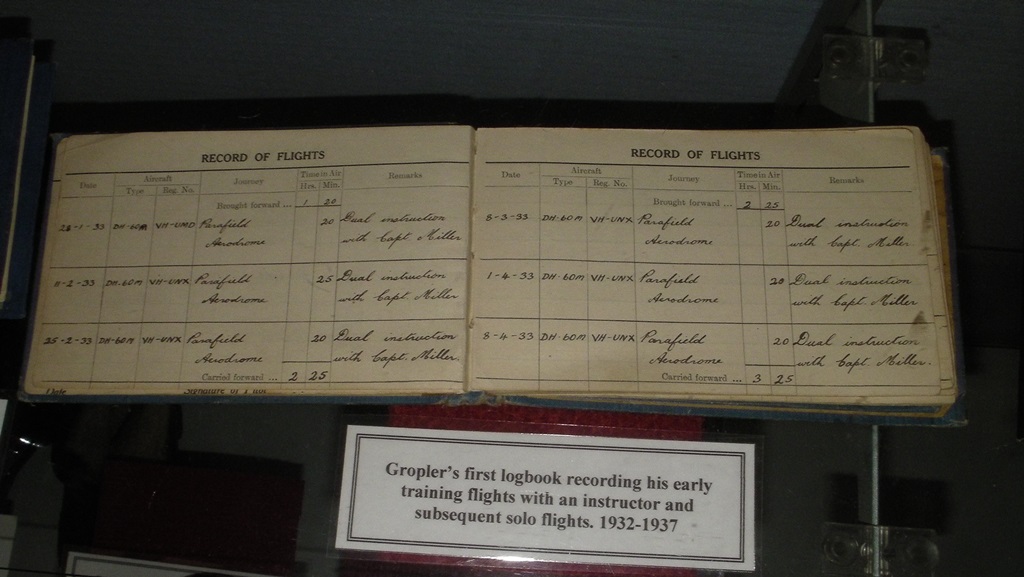 RECORD OF FLIGHTS
Date Aircraft Journey Time in Air Remarks
Type Reg. No. Hrs. Min.
Brought forward ... 1 20
28-1-33 DH-60M VH-UMD Parafield 20 Dual instruction
Aerodrome with Capt. Miller
11-2-33 DH-60M VH-UNX Parafield 25 Dual instruction
Aerodrome with Capt. Miller
25-2-33 DH-60M VH-UNX Parafield 20 Dual instruction
Aerodrome with Capt. Miller.
Carried forward ... 2 25
RECORD OF FLIGHTS
Date Aircraft Journey Time in Air Remarks
Type Reg. No. Hrs. Min.
Brought forward ... 2 25
8-3-33 DH-60M VH-UNX Parafield 20 Dual instruction
Aerodrome with Capt. Miller
1-4-33 DH-60M VH-UNX Parafield 20 Dual instruction
Aerodrome with Capt. Miller
8-4-33 DH-60M VH-UNX Parafield 20 Dual instruction
Aerodrome with Capt. Miller.
Carried forward ... 3 25
Gropler's first logbook recording his early
training flights with an instructor and
subsequent solo flights. 1932-1937